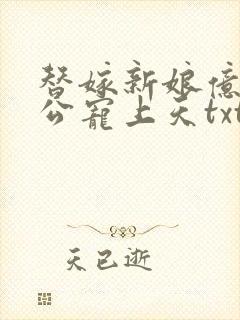 替嫁新娘亿
公宠上天txt
天已逝